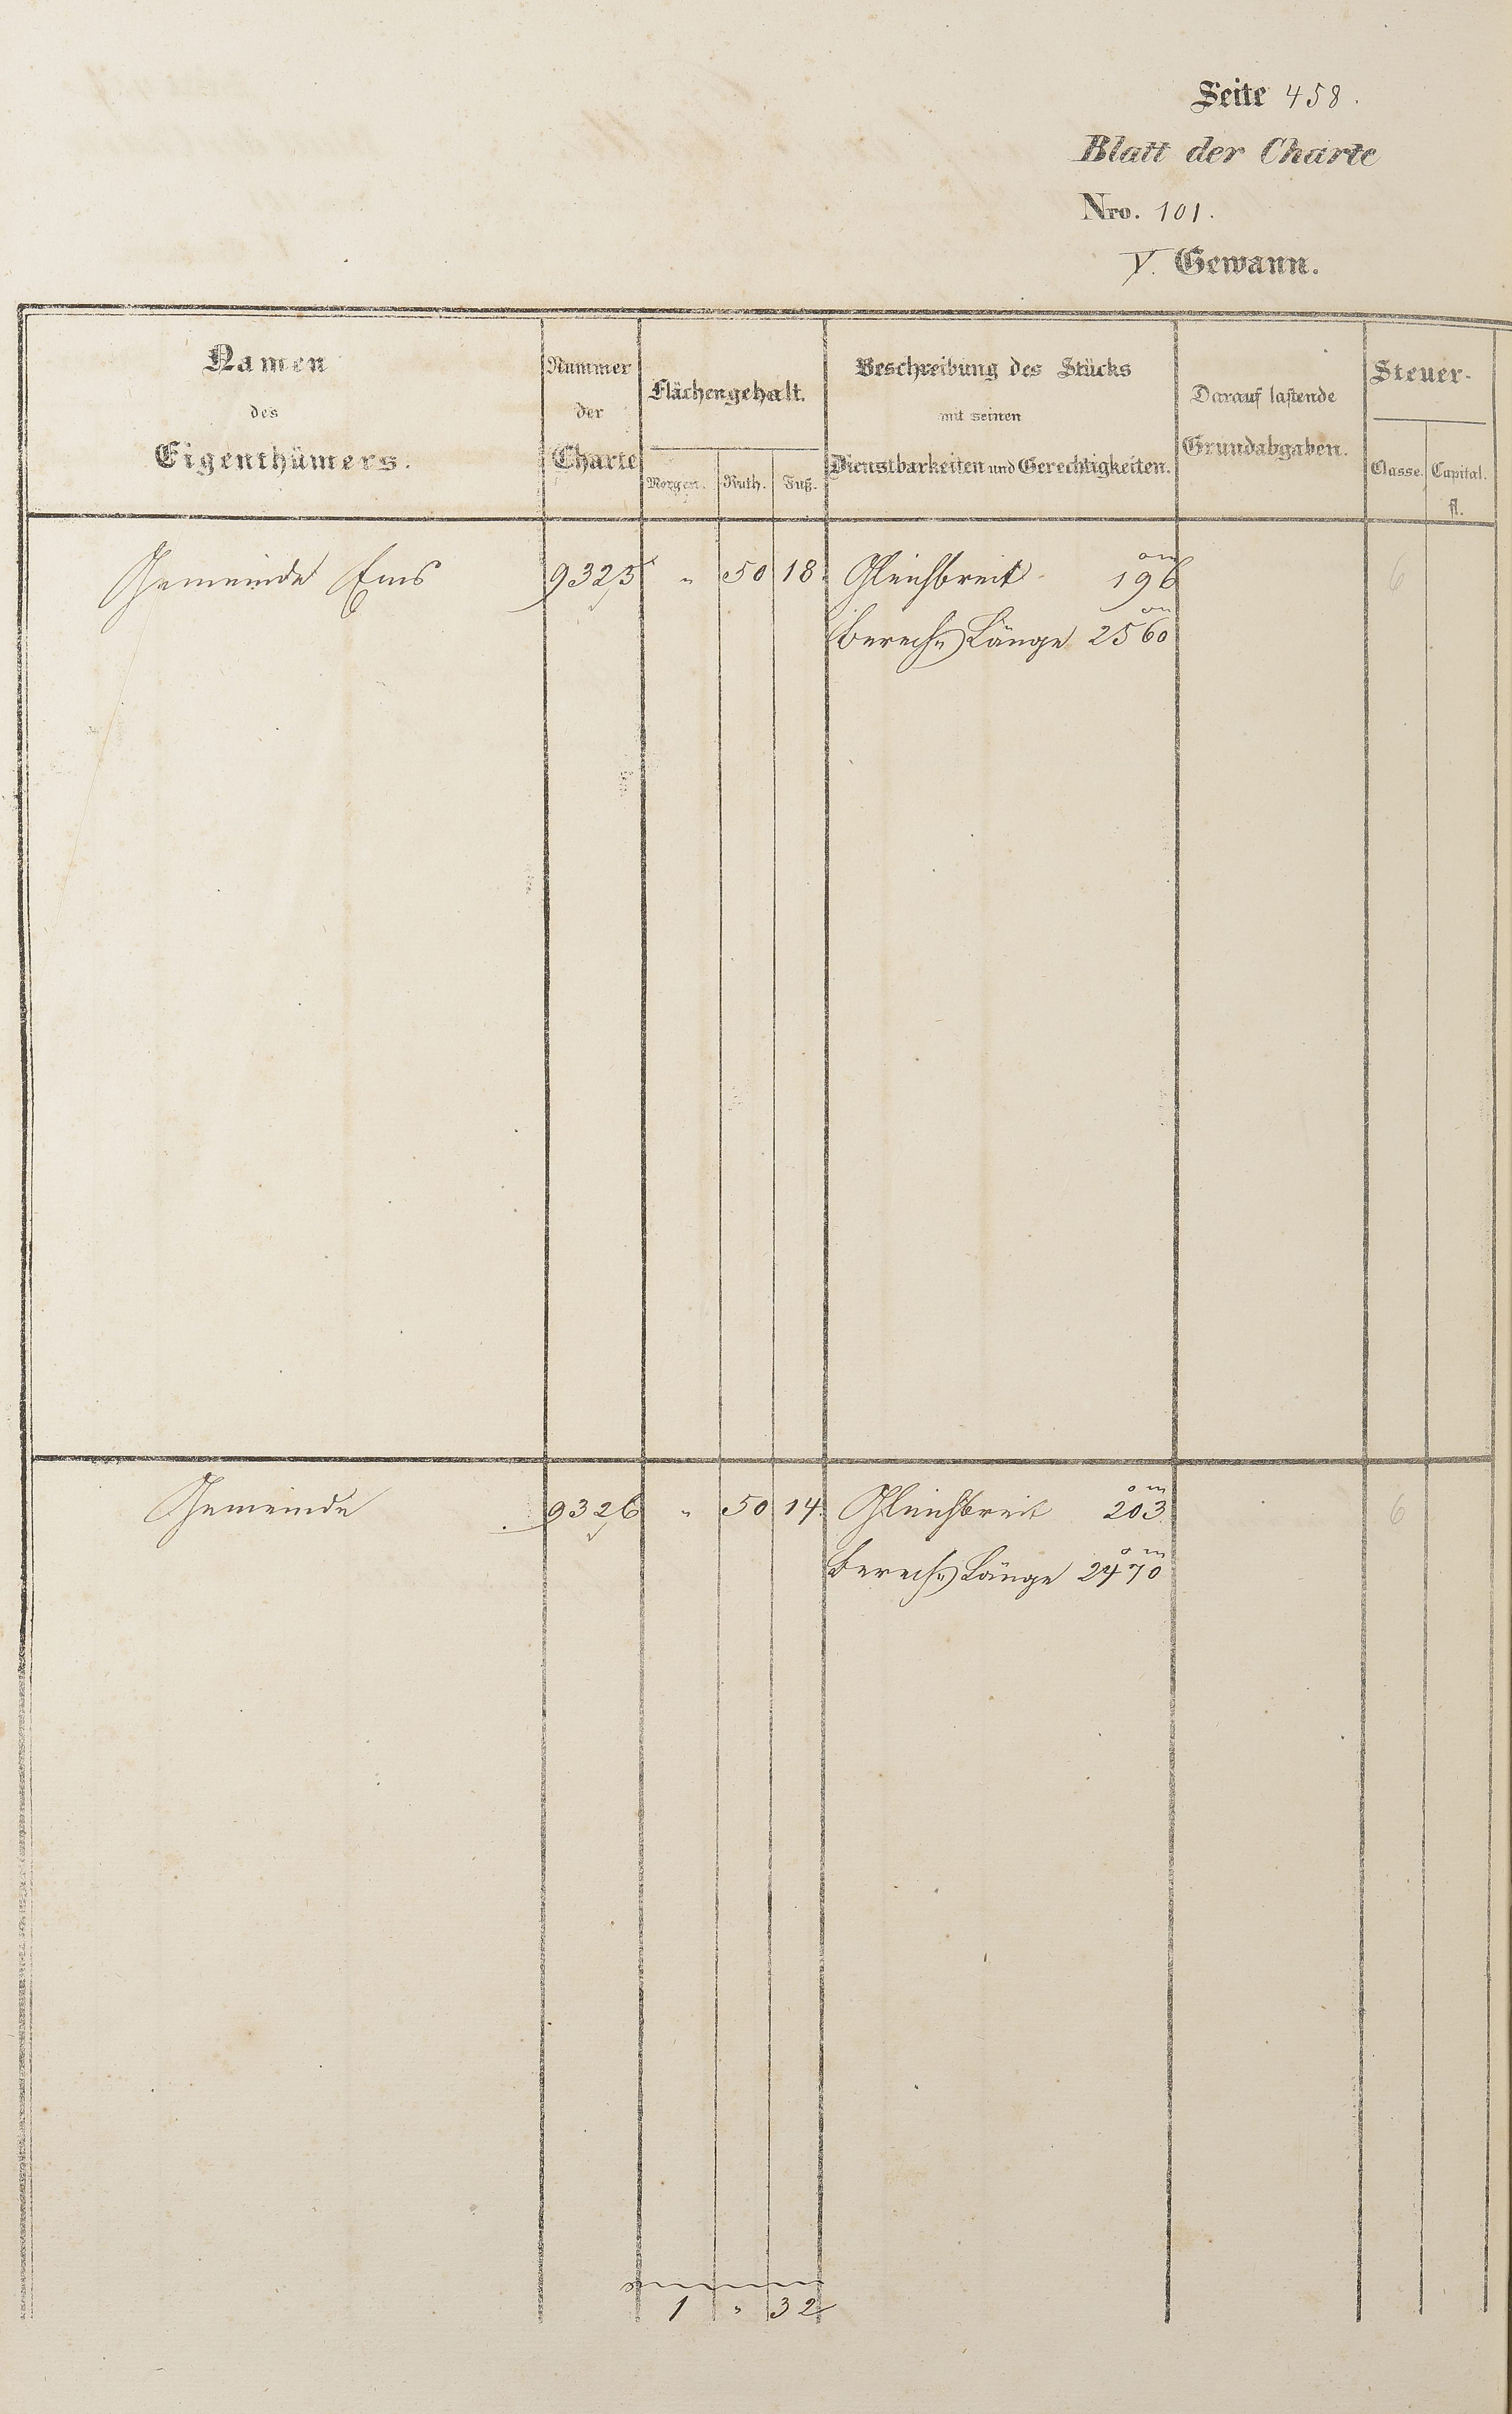 Seite 458.
Blatt der Charte
Nro. 101.
V. Gewann.
Namen des Eigenthümers.
Nummer der Charte
Flächengehalt.
Morgen. Ruth. Fuß.
Beschreibung des Stücks mit seinen Dienstbarkeiten und Gerechtigkeiten.
Darauf lastende Grundabgaben.
Steuer-
Classe. Capital.
fl.
Gemeinde Ems 9325 " 50 18. Gleichbreit 196 6
Berech. Länge 2560
Gemeinde 9326 " 50 14. Gleichbreit 203 6
Berech. Länge 2470
1 " 32